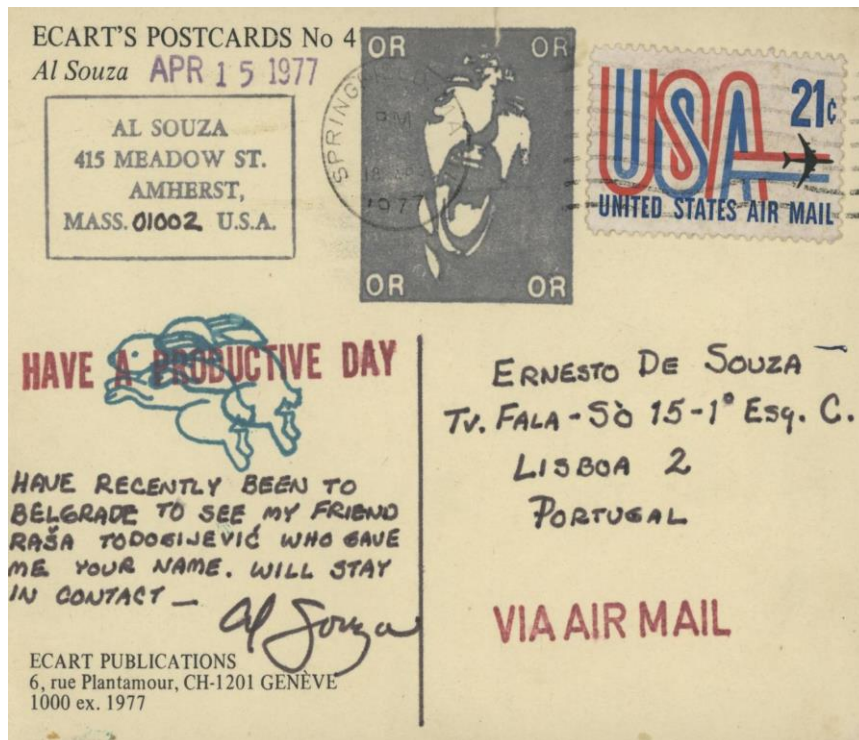 ECART'S POSTCARDS No 4
Al Souza APR 15 1977
AL SOUZA
415 MEADOW ST.
AMHERST,
MASS. 01002 U.S.A.
OR OR
OR OR
PM
18
1977
USA 21c
UNITED STATES AIR MAIL
HAVE A PRODUCTIVE DAY
HAVE RECENTLY BEEN TO
BELGRADE TO SEE MY FRIEND
RAŠA TODOSIJEVIĆ WHO GAVE
ME YOUR NAME. WILL STAY
IN CONTACT —
Al Souza
ECART PUBLICATIONS
6, rue Plantamour, CH-1201 GENÈVE
1000 ex. 1977
ERNESTO DE SOUZA
TV. FALA-SÒ 15-1° ESQ. C.
LISBOA 2
PORTUGAL
VIA AIR MAIL